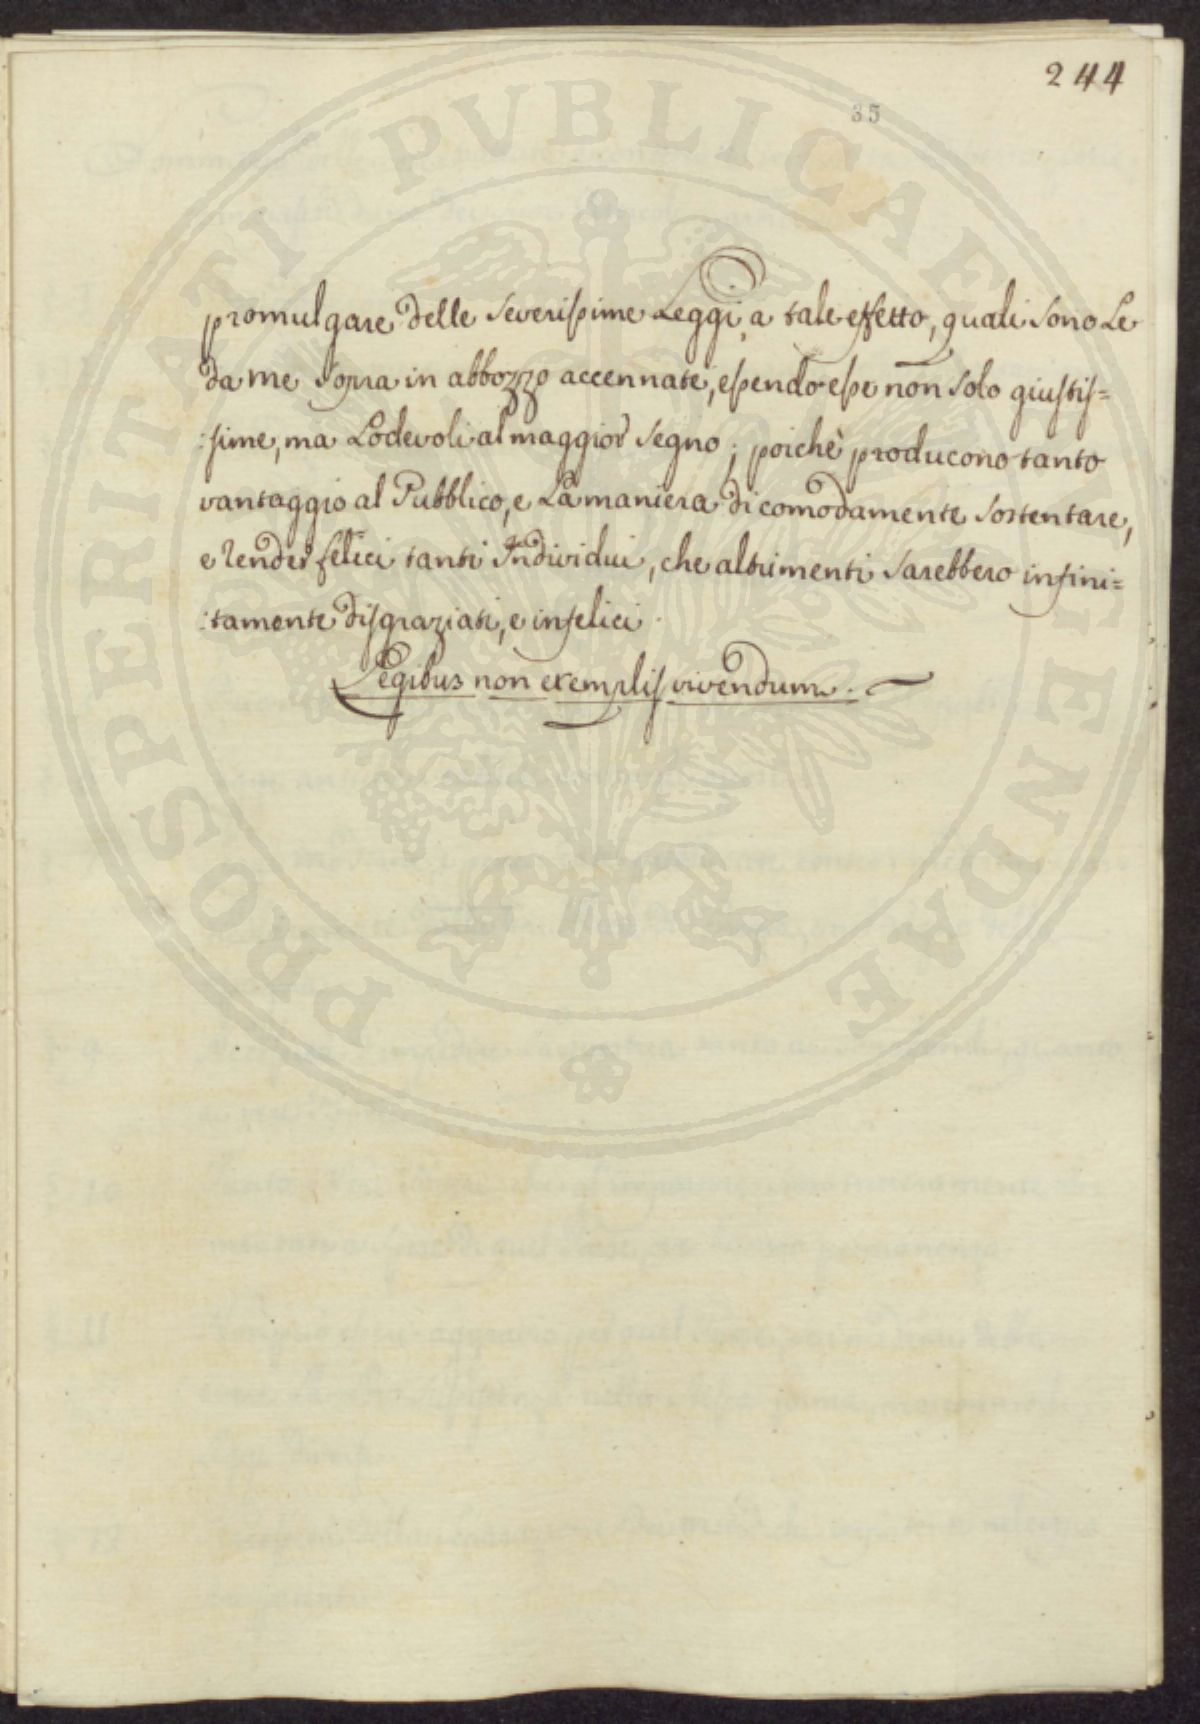 244
35
promulgare delle severissime Leggi a tale effetto, quali sono Le
da me sopra in abbozzo accennate, essendo esse non solo giustis=
:sime, ma Lodevoli al maggior segno; poichè producono tanto
vantaggio al Pubblico, e La maniera di comodamente sostentare,
e render felici tanti Individui, che altrimenti sarebbero infini=
:tamente disgraziati, e infelici.
Legibus non exemplis vivendum.
PROSPERITATI PVBLICAE AVGENDAE